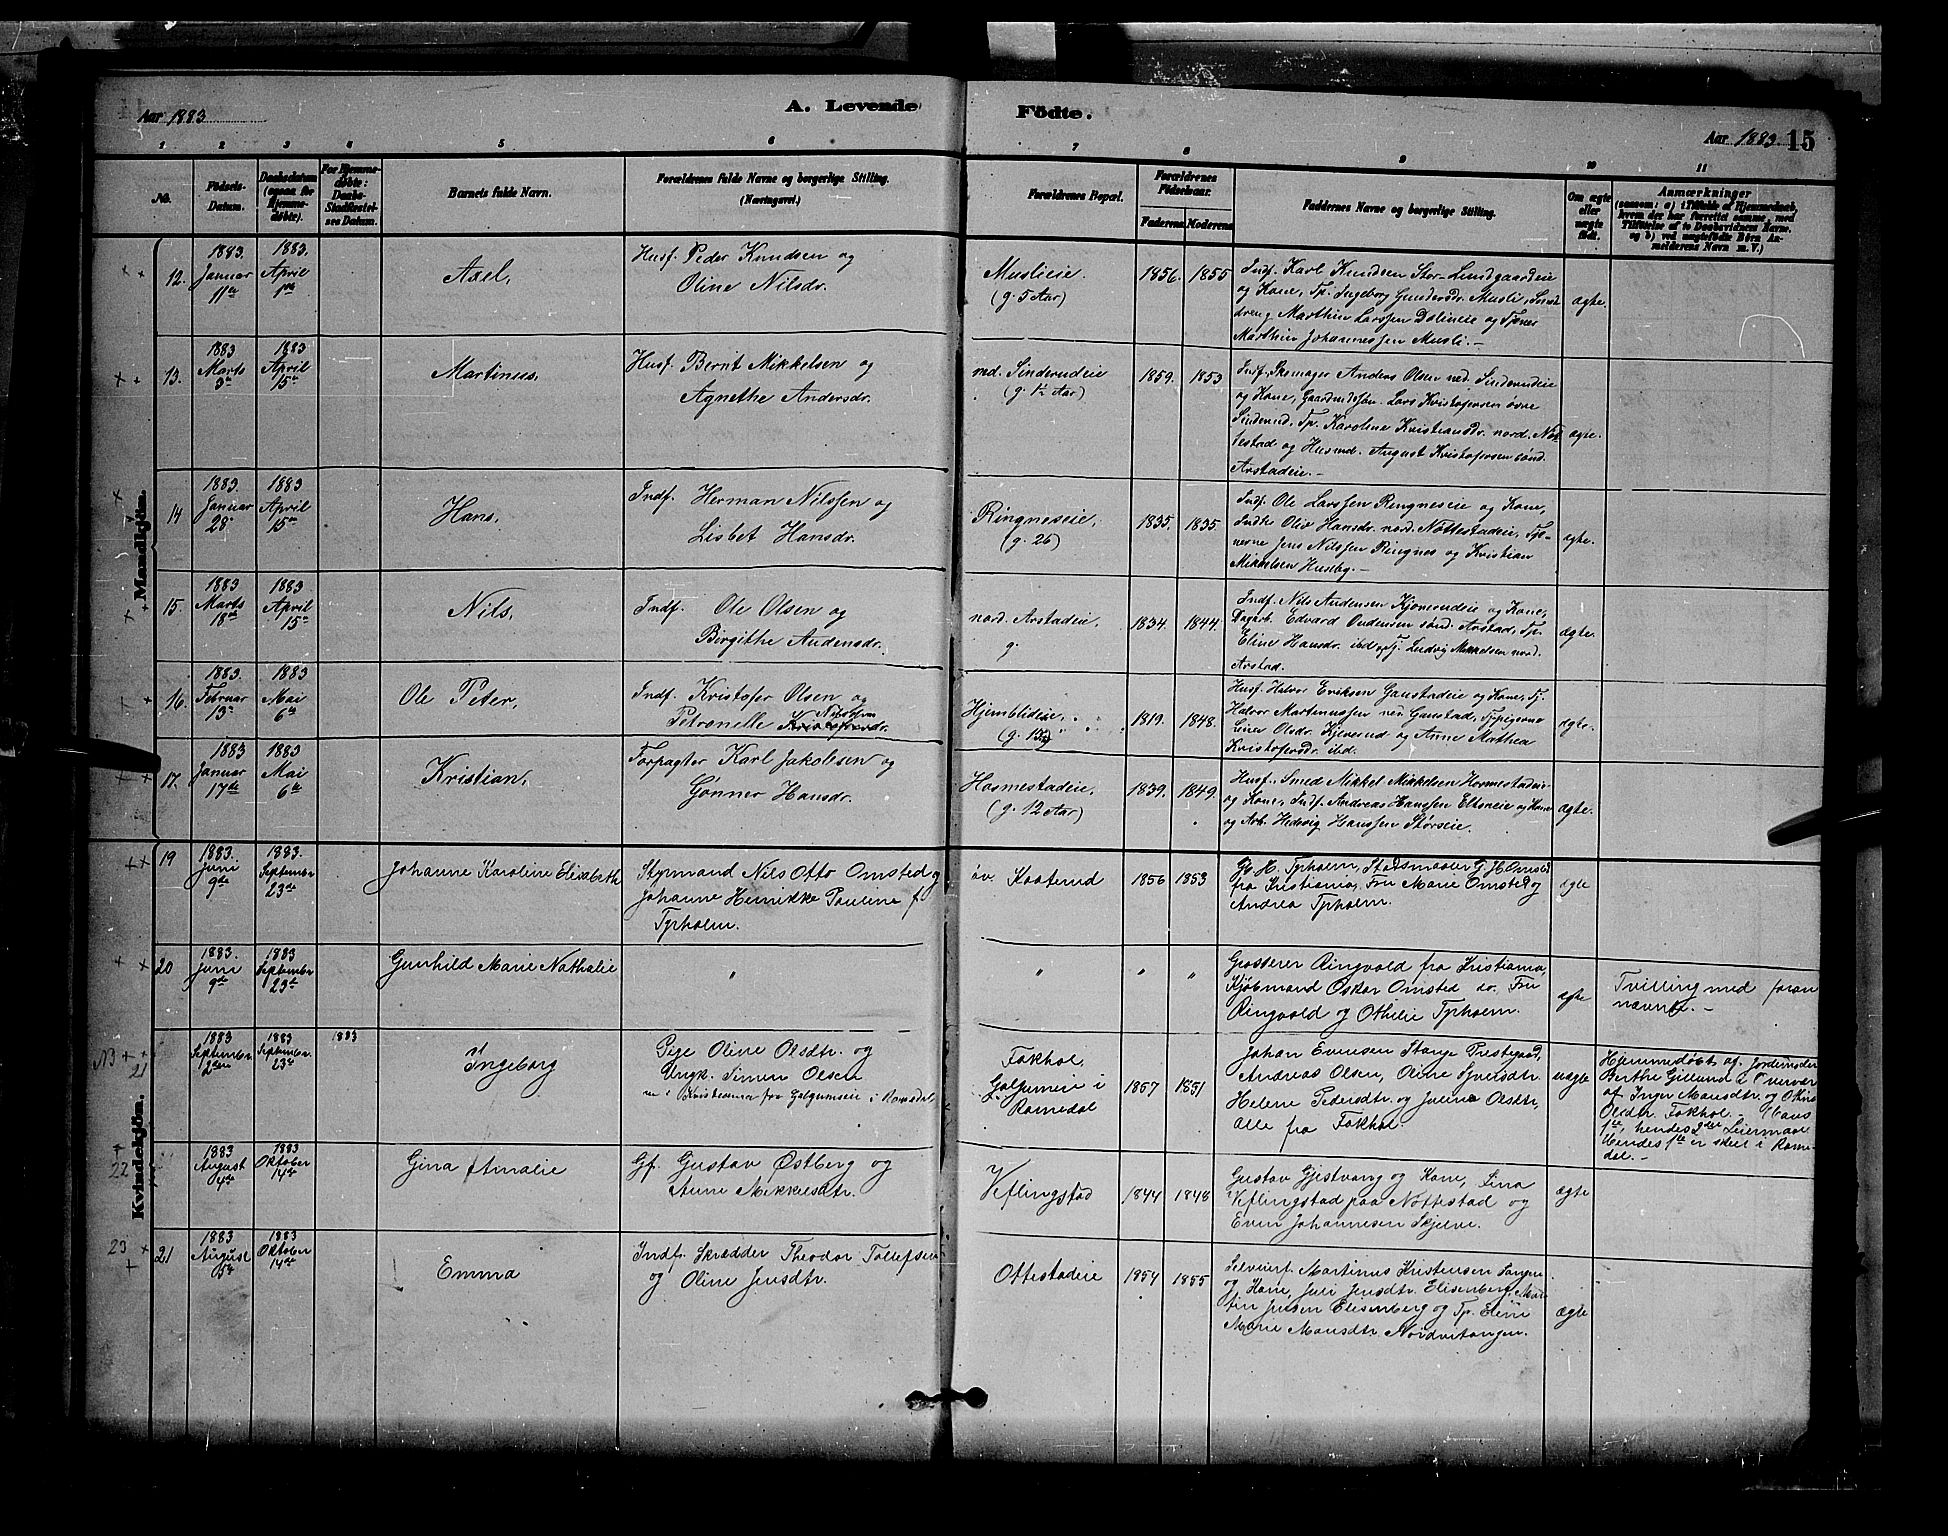 Aar 1883
A. Levende
Födte.
Aar 1883.
15
1 2 3 4 5 6 7 8 9 10 11
No.
Födsels-
Datum.
Daabsdatum
(ogsaa for
Hjemme-
døbte).
For Hjemme-
døbte:
Daabs
Stadfæstel-
ses Datum.
Barnets fulde Navn.
Forældrenes fulde Navne og borgerlige Stilling.
(Næringsvei.)
Forældrenes Bopæl.
Forældrenes
Födselsaar.
Faderens
Moderens
Faddernes Navne og borgerlige Stilling.
Om ægte
eller
uægte
födt.
Anmærkninger
(saasom: a) i Tilfælde af Hjemmedaab,
hvem der har forrettet samme, med
Tilföielse af to Daabsvidners Navne,
og b) ved uægtefödte Börn An-
melderens Navn m. V.)
Mandkjön.
12.
1883.
Januar
11te
1883.
April
1ste
Axel,
Husf. Peder Knudsen og
Oline Nilsdr.
Muslieie
(g. 5 Aar)
1856.
1855
Indf. Karl Knudsen Stor-Lundgaardeie
og Kone, Tp. Ingeborg Gundersdr. Musli, Smed
dreng Marthin Larssen Dolineie og Tjener
Marthin Johannessen Musli.-
ægte.
13.
1883
Marts
3de
1883
April
15de
Martinus,
Husf. Bernt Mikkelsen og
Agnethe Andersdr.
ned. Sinderudeie
(g. 1½ Aar)
1859.
1853
Indf. Skomager Anders Olsen ned. Sinderudeie
og Kone, Gaardmdssøn. Lars Kristofersen øvre
Sinderud, Tp. Karoline Kristiansdr. nord. Not
testad og Husmd. August Kristofersen sönd.
Arstadeie.-
ægte.
14
1883.
Januar
28.
1883
April
15de
Hans,
Indf. Herman Nilssen og
Lisbet Hansdr.
Ringneseie,
(g. 26)
1835.
1835.
Indf. Ole Larssen Ringneseie og Kone,
Indke Oliv Hansdr. nord. Nottestadeie, Tje-
nerne Jens Nilssen Ringnes og Kristian
Mikkelsen Huseby.-
ægte.
15.
1883
Marts
18de
1883
April
15de
Nils,
Indf. Ole Olsen og
Birgithe Andersdr.
nord. Arstadeie.
g.
1834.
1844.
Indf. Nils Andersen Kjonerudeie og Kone,
Dagarb. Edvard Gudersen sönd. Arstad, Tp.
Eline Hansdr. ibd og Tj. Ludvig Mikkelsen nord.
Arstad.
ægte.
16.
1883.
Februar
13de
1883
Mai
6te
Ole Peter,
Indf. Kristofer Olsen og
Petronelle Kristofersdr.
Hjemblideie,
1819.
1848.
Husf. Halvor Eriksen Gaustadeie og Kone, Tj.
Halvor Martinussen ned. Gaustad, Tjpigerne
Eina Olsdr. Kjeverud og Anne Mathea
Kristofersdr. ibd.
ægte.
17.
1883
Januar
17de
1883
Mai
6te
Kristian,
Forpagter Karl Jakobsen og
Gønner Hansdr.
Hosmestadeie,
(g. 12 Aar)
1839.
1849.
Husf. Smed Mikkel Mikkelsen Hosmestadeie
og Kone, Indf. Andreas Hanssen Eltoneie og Kone
og Arb. Hedevig Hanssen Størseie.
ægte.
Kvindekjön.
19
1883.
Juni
9de
1883.
September
23de
Johanne Karoline Elisabeth
Styrmand Nils Otto Omsted og
Johanne Henrikke Pauline f.
Typholm.
øv Kaaterud
1856
1853
Gb. H. Typholm, Stadsmaaler G. H. Omsted
fra Kristiania, Fru Marie Omsted og
Andrea Typholm.
ægte
20
1883.
Juni
9de
1883
September
23de
Gunhild Marie Nathalie
"
"
"
"
Grosserer Ringvold fra Kristiania,
Kjøbmand Oskar Omsted do. Fru
Ringvold og Othilie Typholm.
ægte
Tvilling med foran
nævnte.-
NB
21
1883
September
2den
1883
September
23de
1883
Ingeborg
Pige Oline Olsdtr. og
Ungk. Simen Olsen
nu i Kristiania fra Golgumseie i Romedal
Fokhol
Golgumeie i
Romedal
1857
1851
Johan Evensen Stange Prestegaard,
Andreas Olsen, Oline Syversdtr.
Helene Pedersdtr. og Juline Olsdtr,
alle fra Fokhol.
uægte
Hjemmedøbt af Jordemoder
Berthe Gillund i Overvær
af Inger Mansdtr. og Oline
Olsdtr. Fokhol.- Hans
1ste, hendes 2det Leiermaal
Hendes 1ste er skeet i Rome-
dal.-
22
1883
August
4de
1883
Oktober
14de
Gina Amalie
Gf. Gustav Østberg og
Anne Mikkelsdtr.
Veflingstad
1844
1848
Gustav Gjestvang og Kone, Lina
Veflingstad paa Nottestad og
Even Johannesen Skjelve.
ægte
23
21
1883
August
5te
1883
Oktober
14de
Emma
Indf. Skrædder Theodor Tollefsen
og Oline Jensdtr.
Ottestadeie
1854
1855
Selveierf. Martinus Kristensen Lange
og Kone, Juli Jensdtr. Elisenberg, Mar
tin Jensen Elisenberg og Tp. Eline
Marie Mansdtr Nordvitangen.
ægte